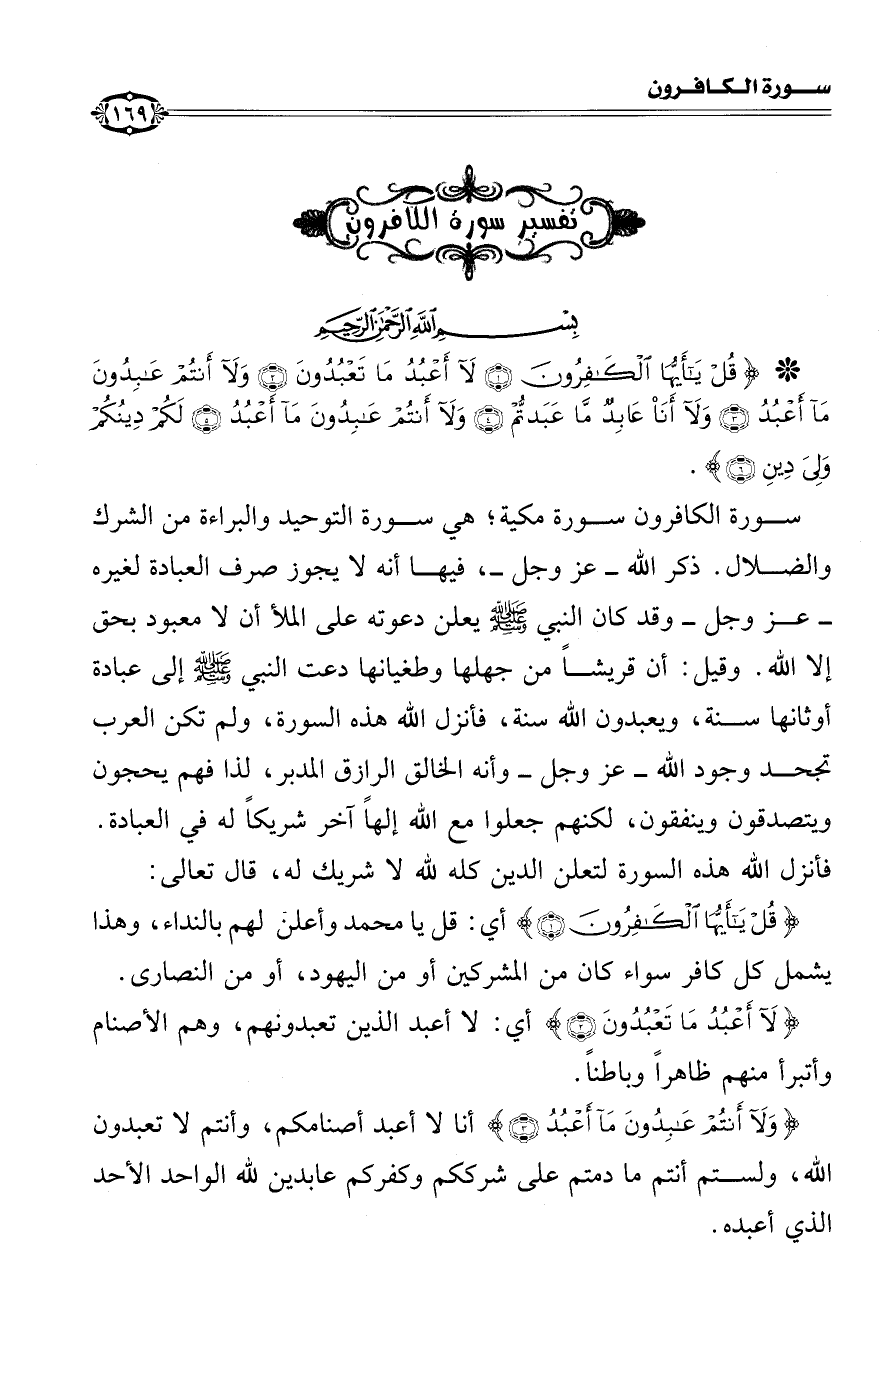 سورة الكافرون
١٦٩
تفسير سورة الكافرون
بِسْمِ اللَّهِ الرَّحْمَٰنِ الرَّحِيمِ
* ﴿ قُلْ يَٰٓأَيُّهَا ٱلْكَٰفِرُونَ ١ لَآ أَعْبُدُ مَا تَعْبُدُونَ ٢ وَلَآ أَنتُمْ عَٰبِدُونَ
مَآ أَعْبُدُ ٣ وَلَآ أَنَا۠ عَابِدٌ مَّا عَبَدتُّمْ ٤ وَلَآ أَنتُمْ عَٰبِدُونَ مَآ أَعْبُدُ ٥ لَكُمْ دِينُكُمْ
وَلِيَ دِينِ ٦ ﴾ .
سورة الكافرون سورة مكية؛ هي سورة التوحيد والبراءة من الشرك
والضلال. ذكر الله ـ عز وجل ـ، فيها أنه لا يجوز صرف العبادة لغيره
ـ عز وجل ـ وقد كان النبي ﷺ يعلن دعوته على الملأ أن لا معبود بحق
إلا الله. وقيل: أن قريشاً من جهلها وطغيانها دعت النبي ﷺ إلى عبادة
أوثانها سنة، ويعبدون الله سنة، فأنزل الله هذه السورة، ولم تكن العرب
تجحد وجود الله ـ عز وجل ـ وأنه الخالق الرازق المدبر، لذا فهم يحجون
ويتصدقون وينفقون، لكنهم جعلوا مع الله إلهاً آخر شريكاً له في العبادة.
فأنزل الله هذه السورة لتعلن الدين كله لله لا شريك له، قال تعالى:
﴿ قُلْ يَٰٓأَيُّهَا ٱلْكَٰفِرُونَ ١ ﴾ أي: قل يا محمد وأعلن لهم بالنداء، وهذا
يشمل كل كافر سواء كان من المشركين أو من اليهود، أو من النصارى.
﴿ لَآ أَعْبُدُ مَا تَعْبُدُونَ ٢ ﴾ أي: لا أعبد الذين تعبدونهم، وهم الأصنام
وأتبرأ منهم ظاهراً وباطناً.
﴿ وَلَآ أَنتُمْ عَٰبِدُونَ مَآ أَعْبُدُ ٣ ﴾ أنا لا أعبد أصنامكم، وأنتم لا تعبدون
الله، ولستم أنتم ما دمتم على شرككم وكفركم عابدين لله الواحد الأحد
الذي أعبده.